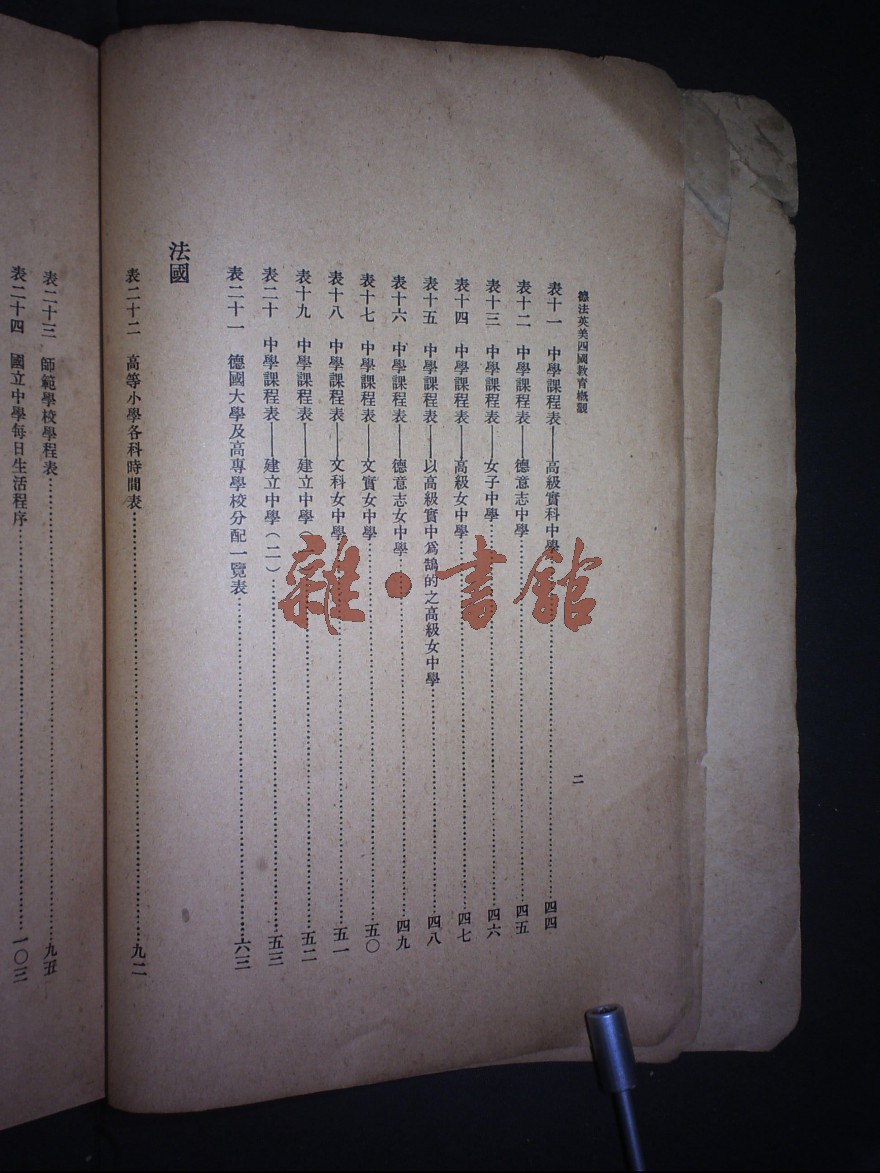 德法英美四國教育概觀
二
表十一　中學課程表——高級實科中學……四四
表十二　中學課程表——德意志中學……四五
表十三　中學課程表——女子中學……四六
表十四　中學課程表——高級女中學……四七
表十五　中學課程表——以高級實中爲鵠的之高級女中學……四八
表十六　中學課程表——德意志女中學……四九
表十七　中學課程表——文實女中學……五〇
表十八　中學課程表——文科女中學……五一
表十九　中學課程表——建立中學（……五二
表二十　中學課程表——建立中學（二）……五三
表二十一　德國大學及高專學校分配一覽表……六三
法國
表二十二　高等小學各科時間表……九二
表二十三　師範學校學程表……九五
表二十四　國立中學每日生活程序……一〇三
雜·書館